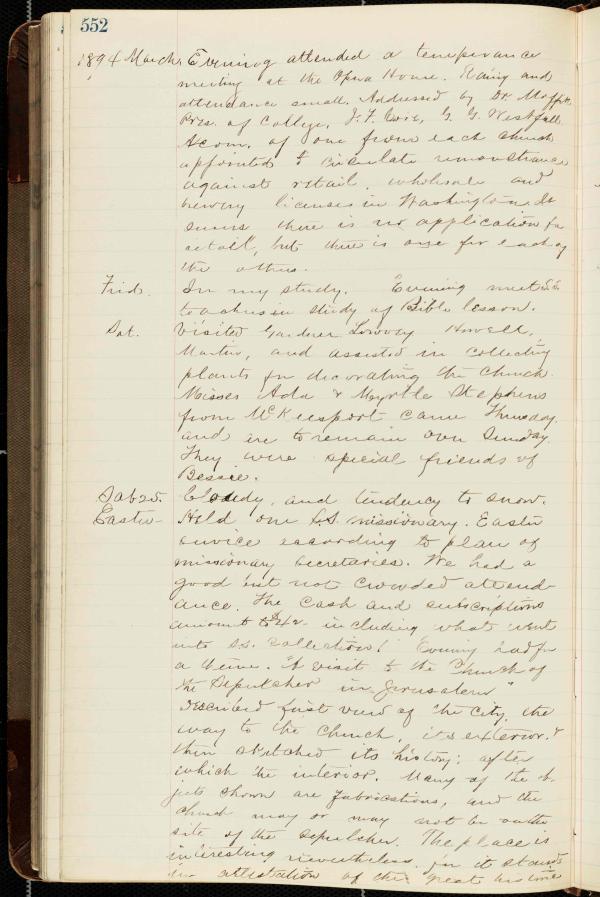 552
1894 March. Evening attended a temperance
meeting at the Opera House. Rainy and
attendance small. Addressed by Dr. Moffat.
Pres. of College, J. F. G. G. Westfall
A com. of one from each church
appointed to circulate remonstrance
against retail, wholesale and
brewery licenses in Washington. It
seems there is no application for
retail, but there is one for each of
the others.
Frid. In my study. Evening met S.S.
teachers in study of Bible lesson.
Sat. Visited Gardner Lowvey Howell,
Martin, and assisted in collecting
plants for decorating the church.
Misses Ada & Myrtle Stephens
from McKeesport came Thursday.
and are to remain over Sunday.
They were special friends of
Bessie.
Sab 25. Cloudy, and tendency to snow.
Easter Held our S.S. missionary. Easter
service according to plan of
missionary secretaries. We had a
good but not crowded attend-
ance. The cash and subscriptions
amount to $42 including what went
into S.S. collection! Evening had for
a theme. "A visit to the Church of
the Sepulcher in Jerusalem"
Described first view of the city, the
way to the church, its exterior. &
then sketched its history; after
which the interior. Many of the ob-
jects shown are fabrications, and the
church may or may not be on the
site of the sepulcher. The place is
interesting nevertheless, for it stands
in attestation of the great historic